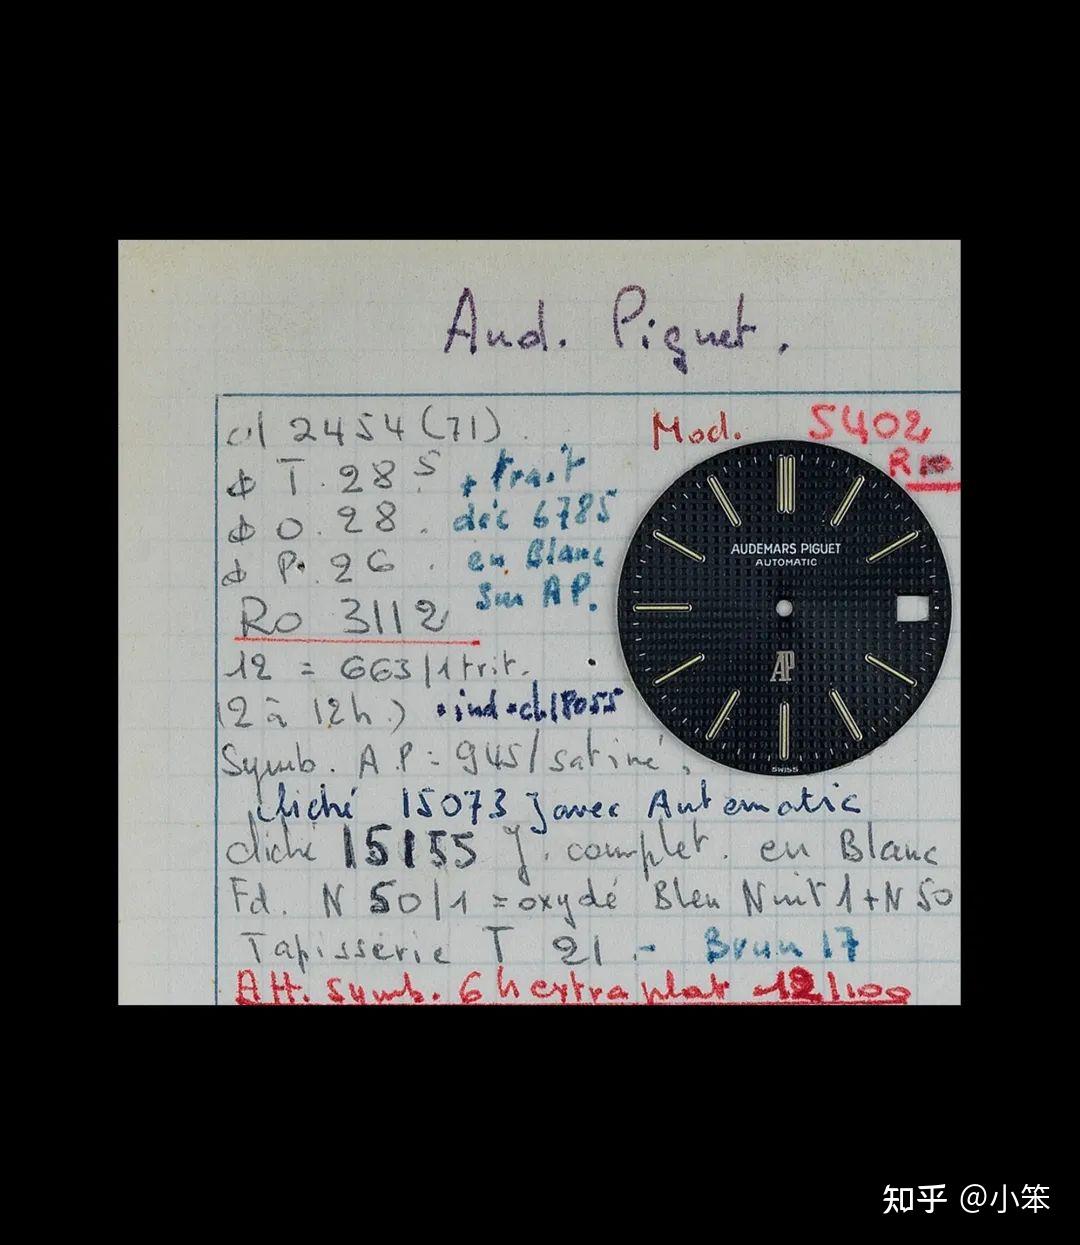 Aud. Piguet.
cl 2454 (71)
Mod. 5402
R10
ϕ T. 28 5 + trait
ϕ O. 28. déc 6785
ϕ P. 26. en Blanc
sur AP.
Ro 3112
12 = 663/1 trit.
(2 à 12h.) + ind + cl 18055
Symb. A.P = 945/satiné,
cliché 15073 J avec Automatic
cliché 15155 J. complet. en Blanc
Fd. N 50/1 = oxydé Bleu Nuit 1 + N 50
Tapisserie T 21 - Brun 17
Att. Symb. 6h extra plat 12/100
AUDEMARS PIGUET
AUTOMATIC
AP
SWISS
知乎 @小笨